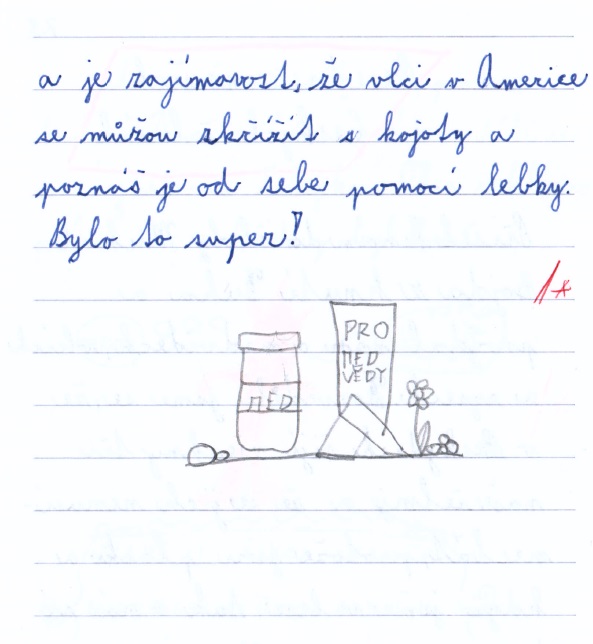 a je zajímavost, že vlci v Americe
se můžou zkřížit s kojoty a
poznáš je od sebe pomocí lebky.
Bylo to super!
1*
PRO
MED
VĚDY
MED